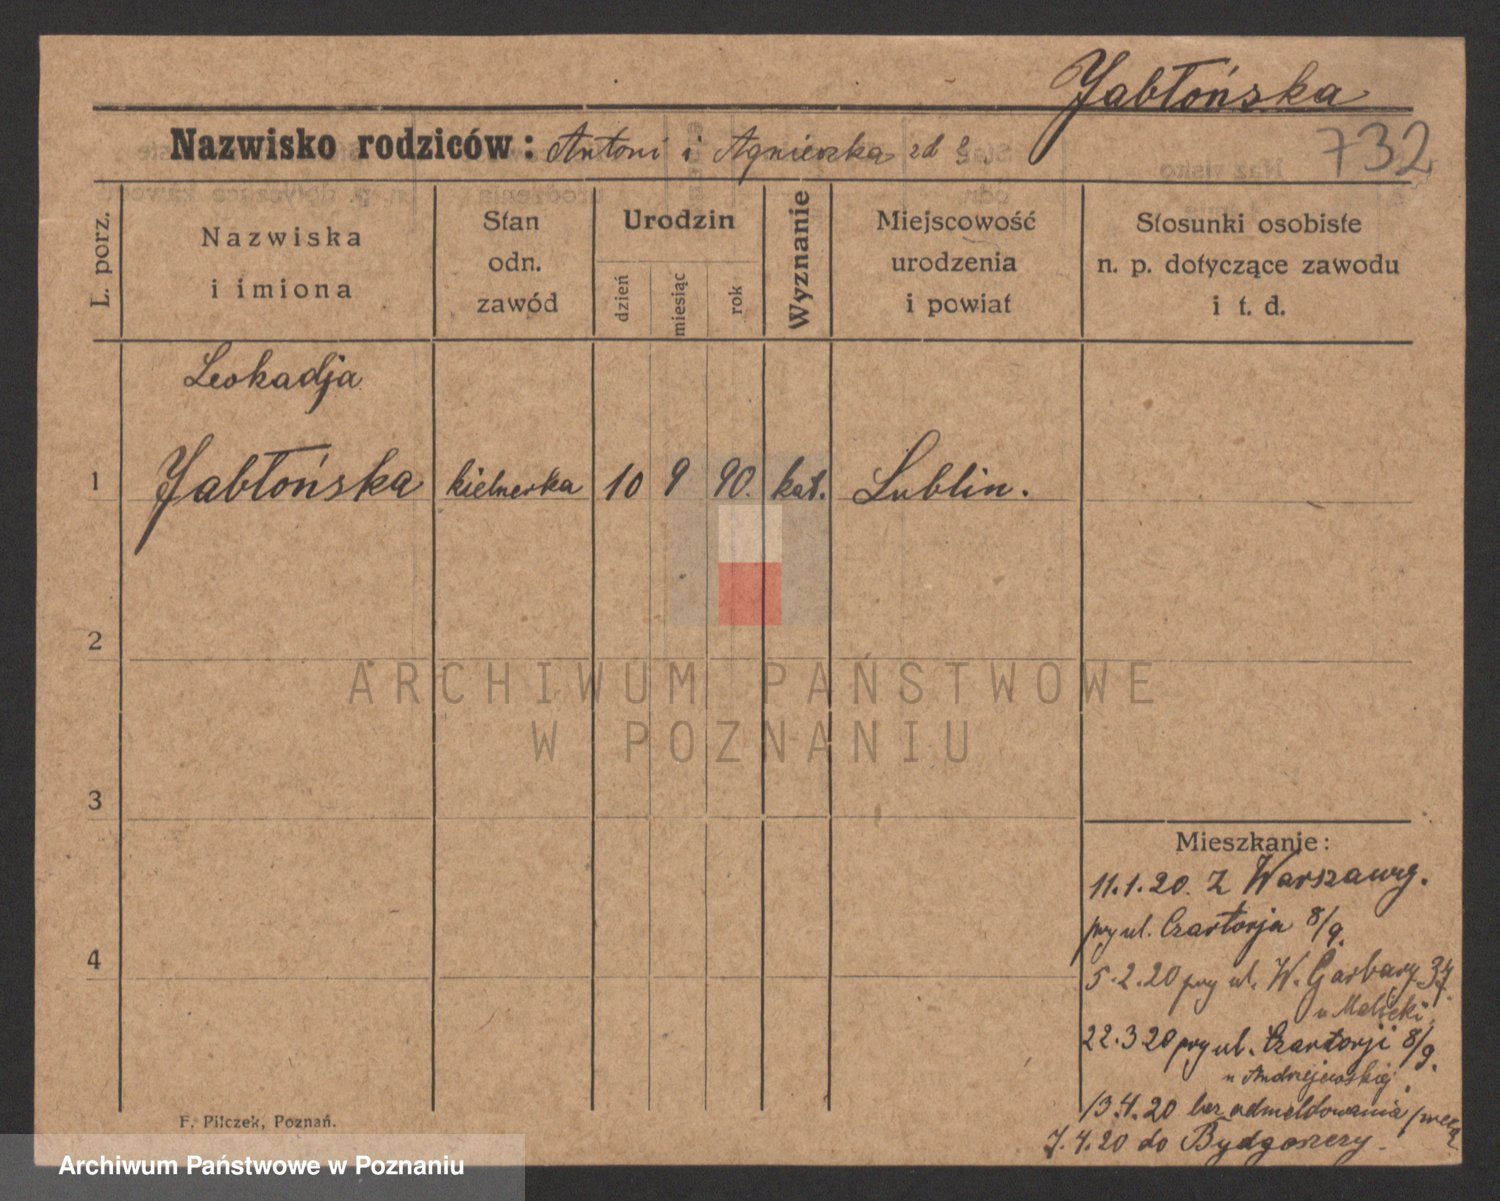 Jabłońska
732
Nazwisko rodziców: Antoni i Agnieszka zd
L. porz.
Nazwiska
i imiona
Stan
odn.
zawód
Urodzin
dzień
miesiąc
rok
Wyznanie
Miejscowość
urodzenia
i powiat
Stosunki osobiste
n. p. dotyczące zawodu
i t. d.
Leokadja
1 Jabłońska kielnerka 10 9 90. kat. Lublin.
2
3
4
Mieszkanie:
11.1.20. Z Warszawy.
przy ul. Czartorja 8/9.
5.2.20 przy ul. W. Garbary 37
u
22.3 20 przy ul. Czartorji 8/9.
u Andrzejewskiej.
13.4.20 bez odmeldowania
7.4.20 do Bydgoszczy.
F. Pilczek, Poznań.
ARCHIWUM PAŃSTWOWE
W POZNANIU
Archiwum Państwowe w Poznaniu